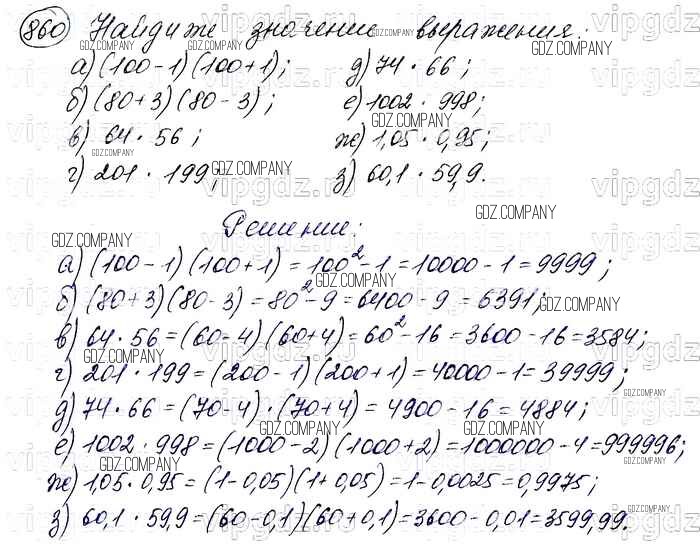 860 Найдите значение выражения:
а) (100-1)(100+1); д) 74·66;
б) (80+3)(80-3); е) 1002·998;
в) 64·56; ж) 1,05·0,95;
г) 201·199; з) 60,1·59,9.
Решение:
а) (100-1)(100+1)=100²-1=10000-1=9999;
б) (80+3)(80-3)=80²-9=6400-9=6391;
в) 64·56=(60-4)(60+4)=60²-16=3600-16=3584;
г) 201·199=(200-1)(200+1)=40000-1=39999;
д) 74·66=(70-4)·(70+4)=4900-16=4884;
е) 1002·998=(1000-2)(1000+2)=1000000-4=999996;
ж) 1,05·0,95=(1-0,05)(1+0,05)=1-0,0025=0,9975;
з) 60,1·59,9=(60-0,1)(60+0,1)=3600-0,01=3599,99.